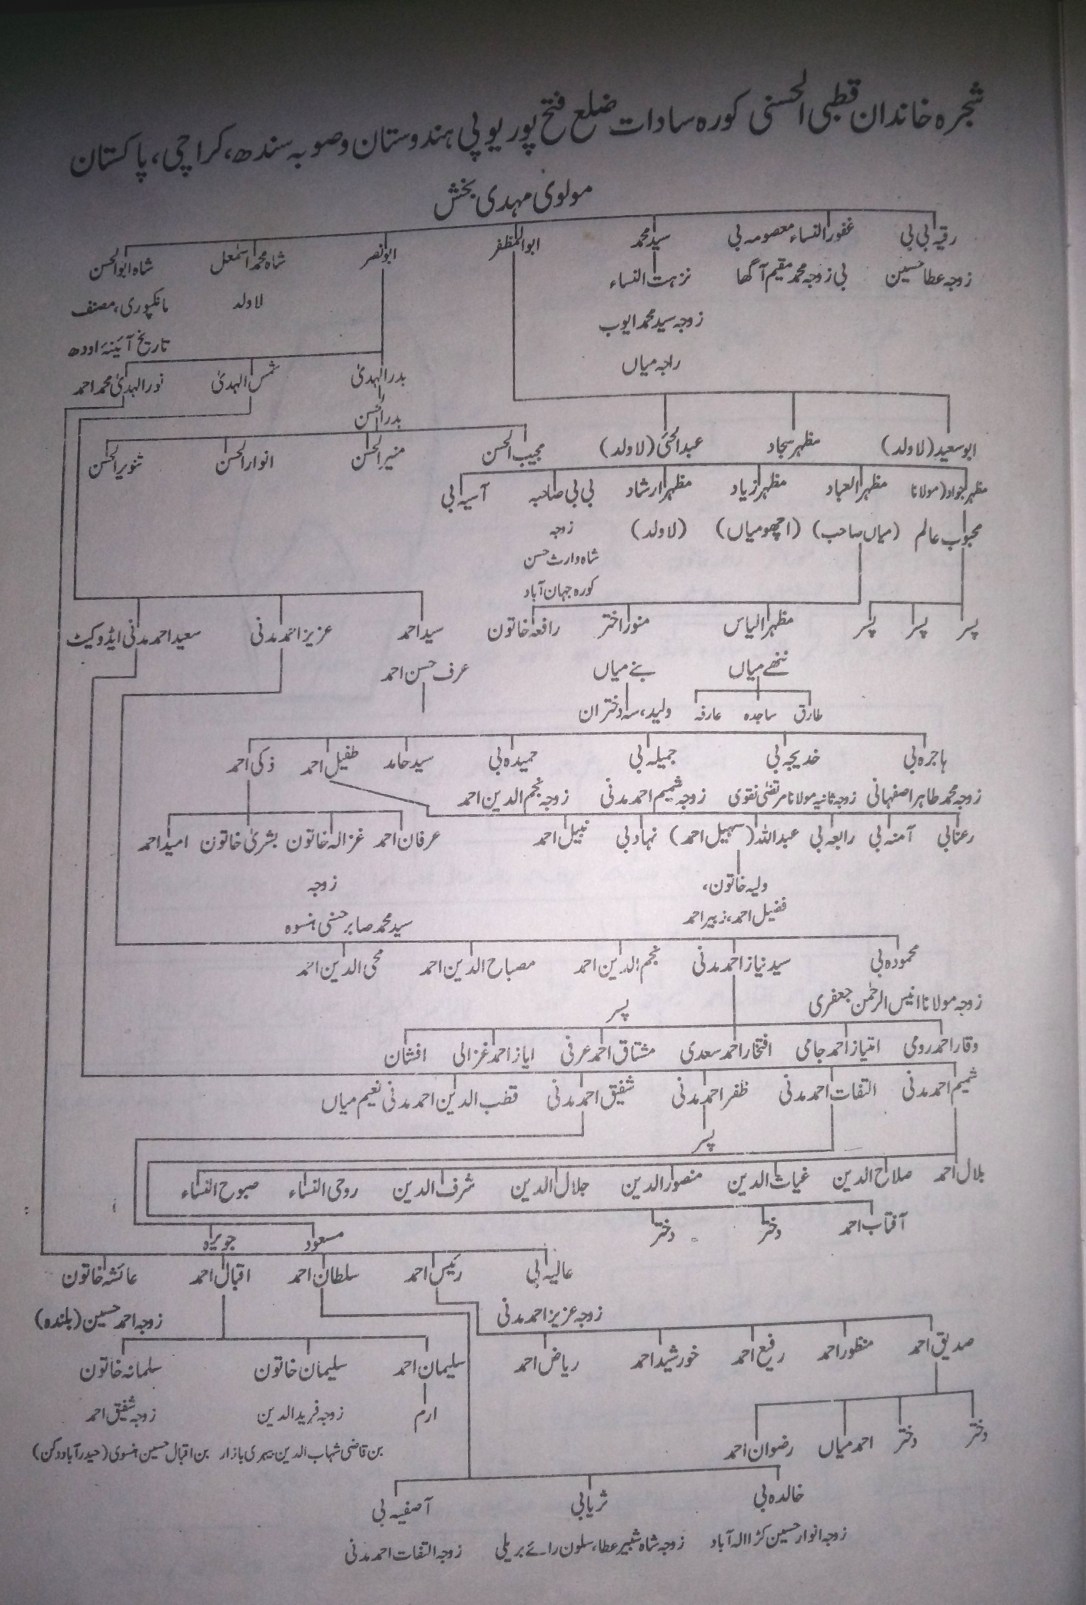 شجرہ خاندان قطبی الحسنی کورہ سادات ضلع فتح پور یو پی ہندوستان و صوبہ سندھ، کراچی، پاکستان
مولوی مہدی بخش
رقیہ بی بی غفور النساء معصومہ بی سید محمد ابوالمظفر ابونصر شاہ محمد اسمٰعل شاہ ابوالحسن
زوجہ عطا حسین بی زوجہ محمد مقیم آگھا نزہت النساء لاولد مانکپوری، مصنف
زوجہ سید محمد ایوب تاریخ آئینۂ اودھ
راجہ میاں
بدر الہدیٰ شمس الہدیٰ نور الہدیٰ محمد احمد
بدر الحسن
مجیب الحسن منیر الحسن انوار الحسن تنویر الحسن
ابو سعید (لاولد) مظہر سجاد عبدالحئی (لاولد)
مظہر جواد (مولانا مظہر العباد مظہر زیاد مظہر ارشاد بی بی صاحبہ آسیہ بی
محبوب عالم (میاں صاحب) (اچھو میاں) (لاولد) زوجہ
شاہ وارث حسن
کورہ جہان آباد
پسر پسر پسر مظہر الیاس منور اختر رافعہ خاتون
ننھے میاں بنے میاں
طارق ساجدہ عارفہ ولید، سہ دختران
سید احمد عزیز احمد مدنی سعید احمد مدنی ایڈوکیٹ
عرف حسن احمد
ہاجرہ بی خدیجہ بی جمیلہ بی حمیدہ بی سید حامد طفیل احمد ذکی احمد
زوجہ محمد طاہر اصفہانی زوجہ ثانیہ مولانا مرتضیٰ نقوی زوجہ شمیم احمد مدنی زوجہ نجم الدین احمد
رعنا بی آمنہ بی رابعہ بی عبداللہ (سہیل احمد) نہاد بی نبیل احمد
عرفان احمد غزالہ خاتون بشریٰ خاتون امید احمد
ولیہ خاتون، زوجہ
فضیل احمد، زبیر احمد سید محمد صابر حسنی ہنسوہ
محمودہ بی سید نیاز احمد مدنی نجم الدین احمد مصباح الدین احمد محی الدین احمد
زوجہ مولانا انیس الرحمٰن جعفری پسر
وقار احمد رومی امتیاز احمد جامی افتخار احمد سعدی مشتاق احمد عرفی ایاز احمد غزالی افشاں
شمیم احمد مدنی التفات احمد مدنی ظفر احمد مدنی شفیق احمد مدنی قطب الدین احمد مدنی نعیم میاں
پسر
بلال احمد صلاح الدین غیاث الدین منصور الدین جلال الدین شرف الدین روحی النساء صبوح النساء
آفتاب احمد دختر دختر
مسعود جویرہ
عالیہ بی رئیس احمد سلطان احمد اقبال احمد عائشہ خاتون
زوجہ عزیز احمد مدنی زوجہ احمد حسین (بلندہ)
صدیق احمد منظور احمد رفیع احمد خورشید احمد ریاض احمد
سلیمان احمد سلیمان خاتون سلمانہ خاتون
ارم زوجہ فرید الدین زوجہ شفیق احمد
دختر دختر احمد میاں رضوان احمد
بن قاضی شہاب الدین بیہری بازار بن اقبال حسین ہنسوی (حیدر آباد دکن)
خالدہ بی ثریا بی آصفیہ بی
زوجہ انوار حسین کڑا الہ آباد زوجہ شاہ شبیر عطا، سلون رائے بریلی زوجہ التفات احمد مدنی